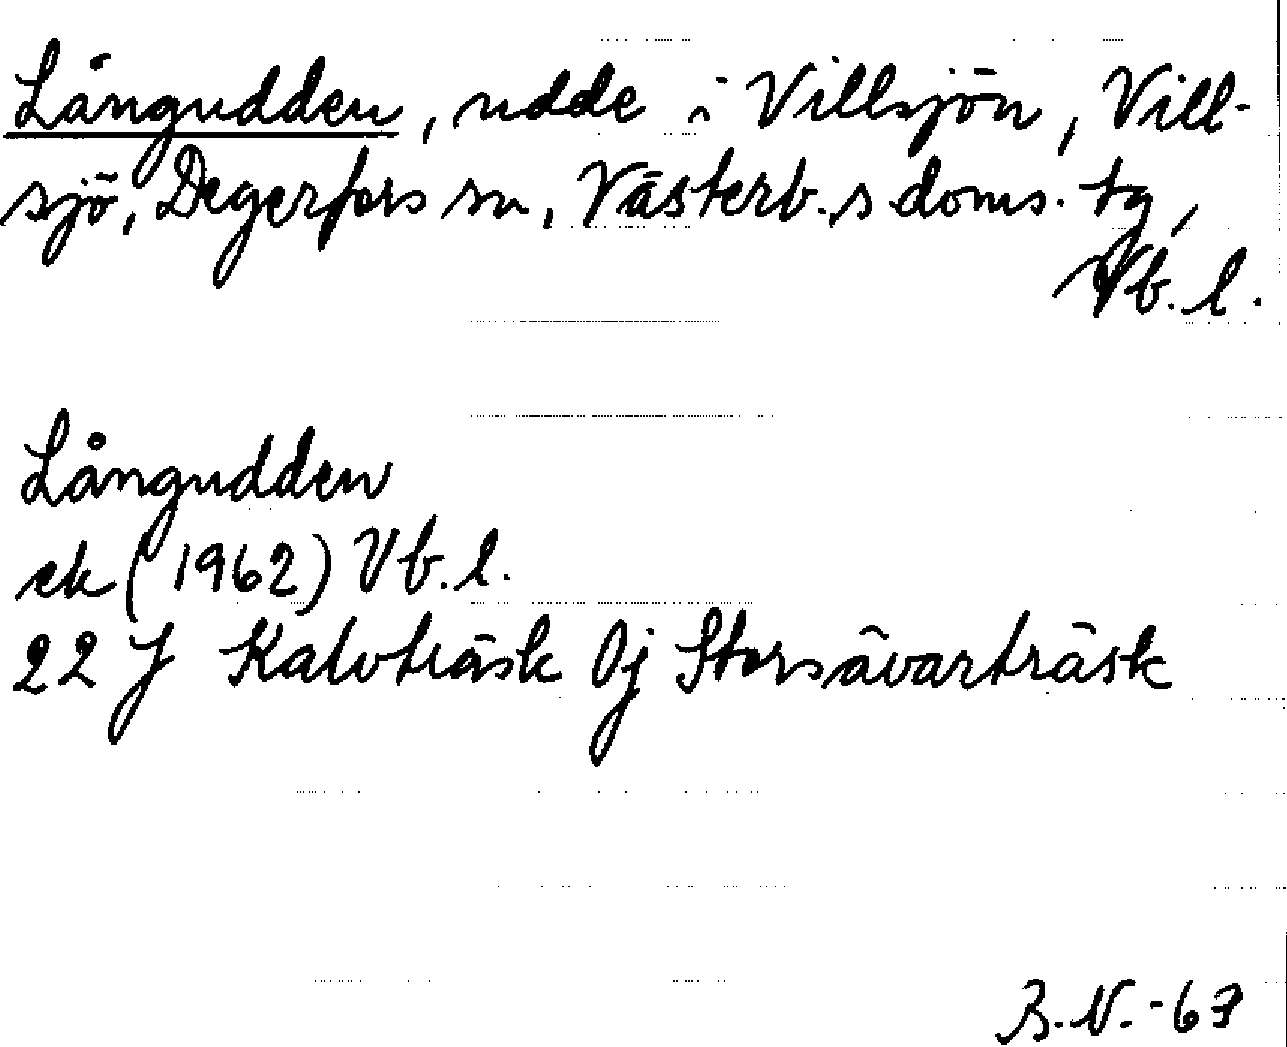 Långudden, udde i Villsjön, Vill-
sjö, Degerfors sn, Västerb. s. doms. tg,
Vb. l.
Långudden
ek (1962) Vb. l.
22 J Kalvträsk 0j Storsävarträsk
B.N. -63